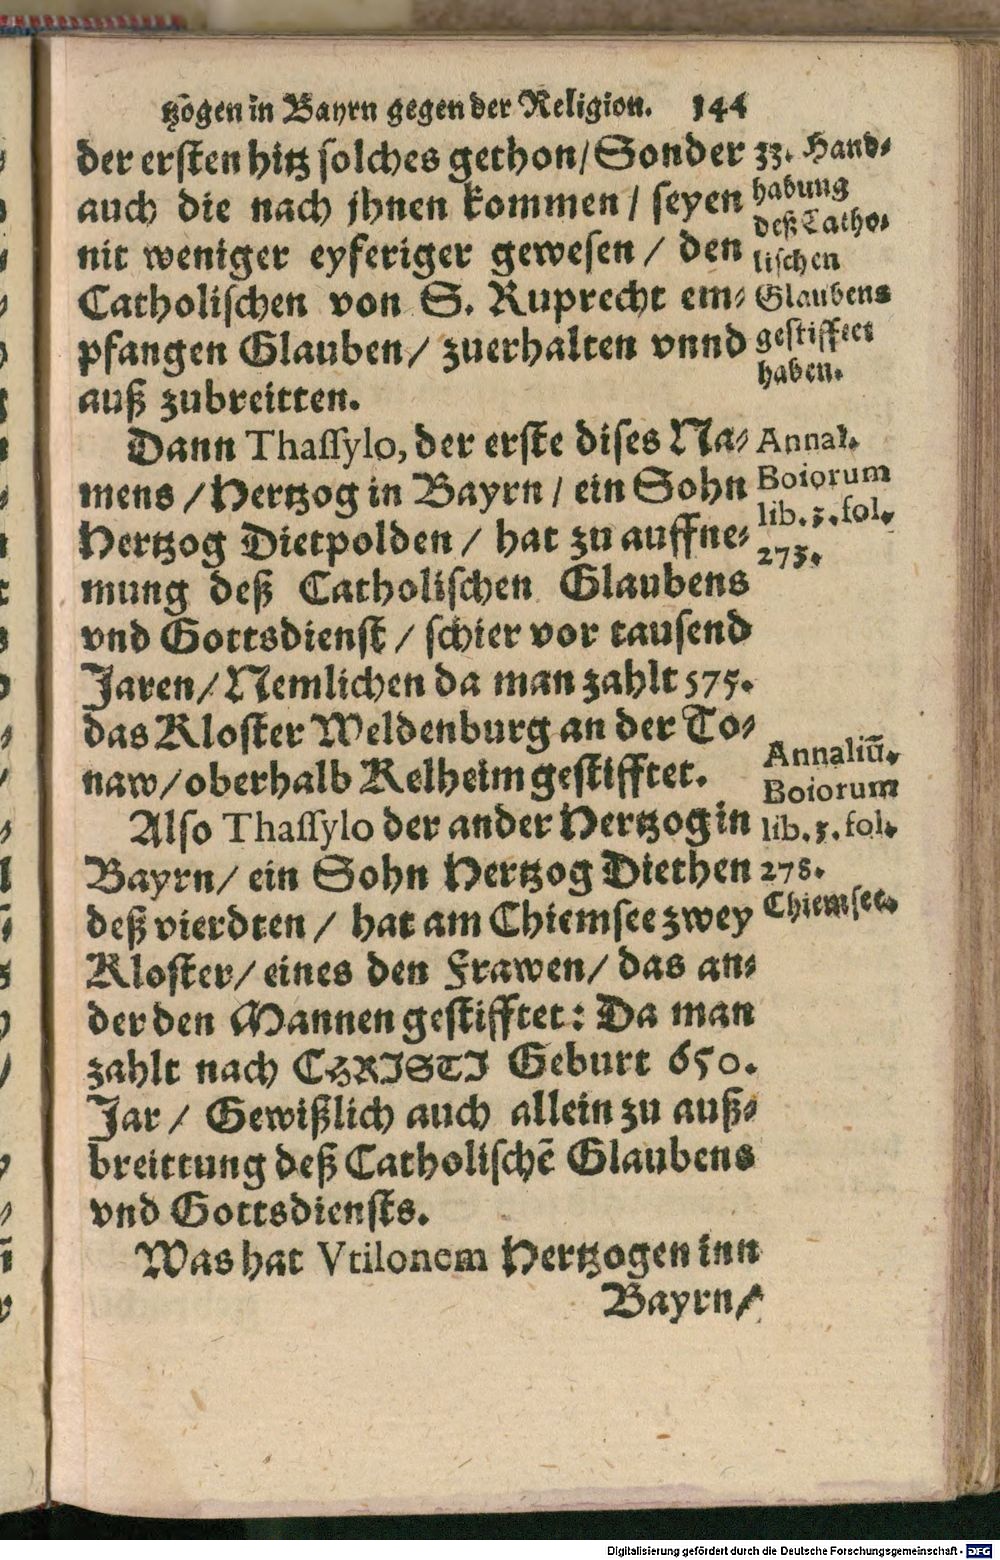 tzögen in Bayrn gegen der Religion. 144
der ersten hitz solches gethon/ Sonder
auch die nach jhnen kommen / seyen
nit weniger eyferiger gewesen / den
Catholischen von S. Ruprecht em-
pfangen Glauben/ zuerhalten vnnd
auß zubreitten.
33. Hand-
habung
deß Catho-
lischen
Glaubens
gestifftet
haben.
Dann Thassylo, der erste dises Na-
mens / Hertzog in Bayrn / ein Sohn
Hertzog Dietpolden / hat zu auffne-
mung deß Catholischen Glaubens
vnd Gottsdienst / schier vor tausend
Jaren/ Nemlichen da man zahlt 575.
das Kloster Weldenburg an der To-
naw/ oberhalb Kelheim gestifftet.
Annal.
Boiorum
lib. 3. fol.
275.
Also Thassylo der ander Hertzog in
Bayrn/ ein Sohn Hertzog Diethen
deß vierdten / hat am Chiemsee zwey
Kloster/ eines den Frawen/ das an-
der den Mannen gestifftet: Da man
zahlt nach CHRISTI Geburt 650.
Jar / Gewißlich auch allein zu auß-
breittung deß Catholischē Glaubens
vnd Gottsdiensts.
Annaliū.
Boiorum
lib. 3. fol.
278.
Chiemsee.
Was hat Vtilonem Hertzogen inn
Bayrn/
Digitalisierung gefördert durch die Deutsche Forschungsgemeinschaft - DFG